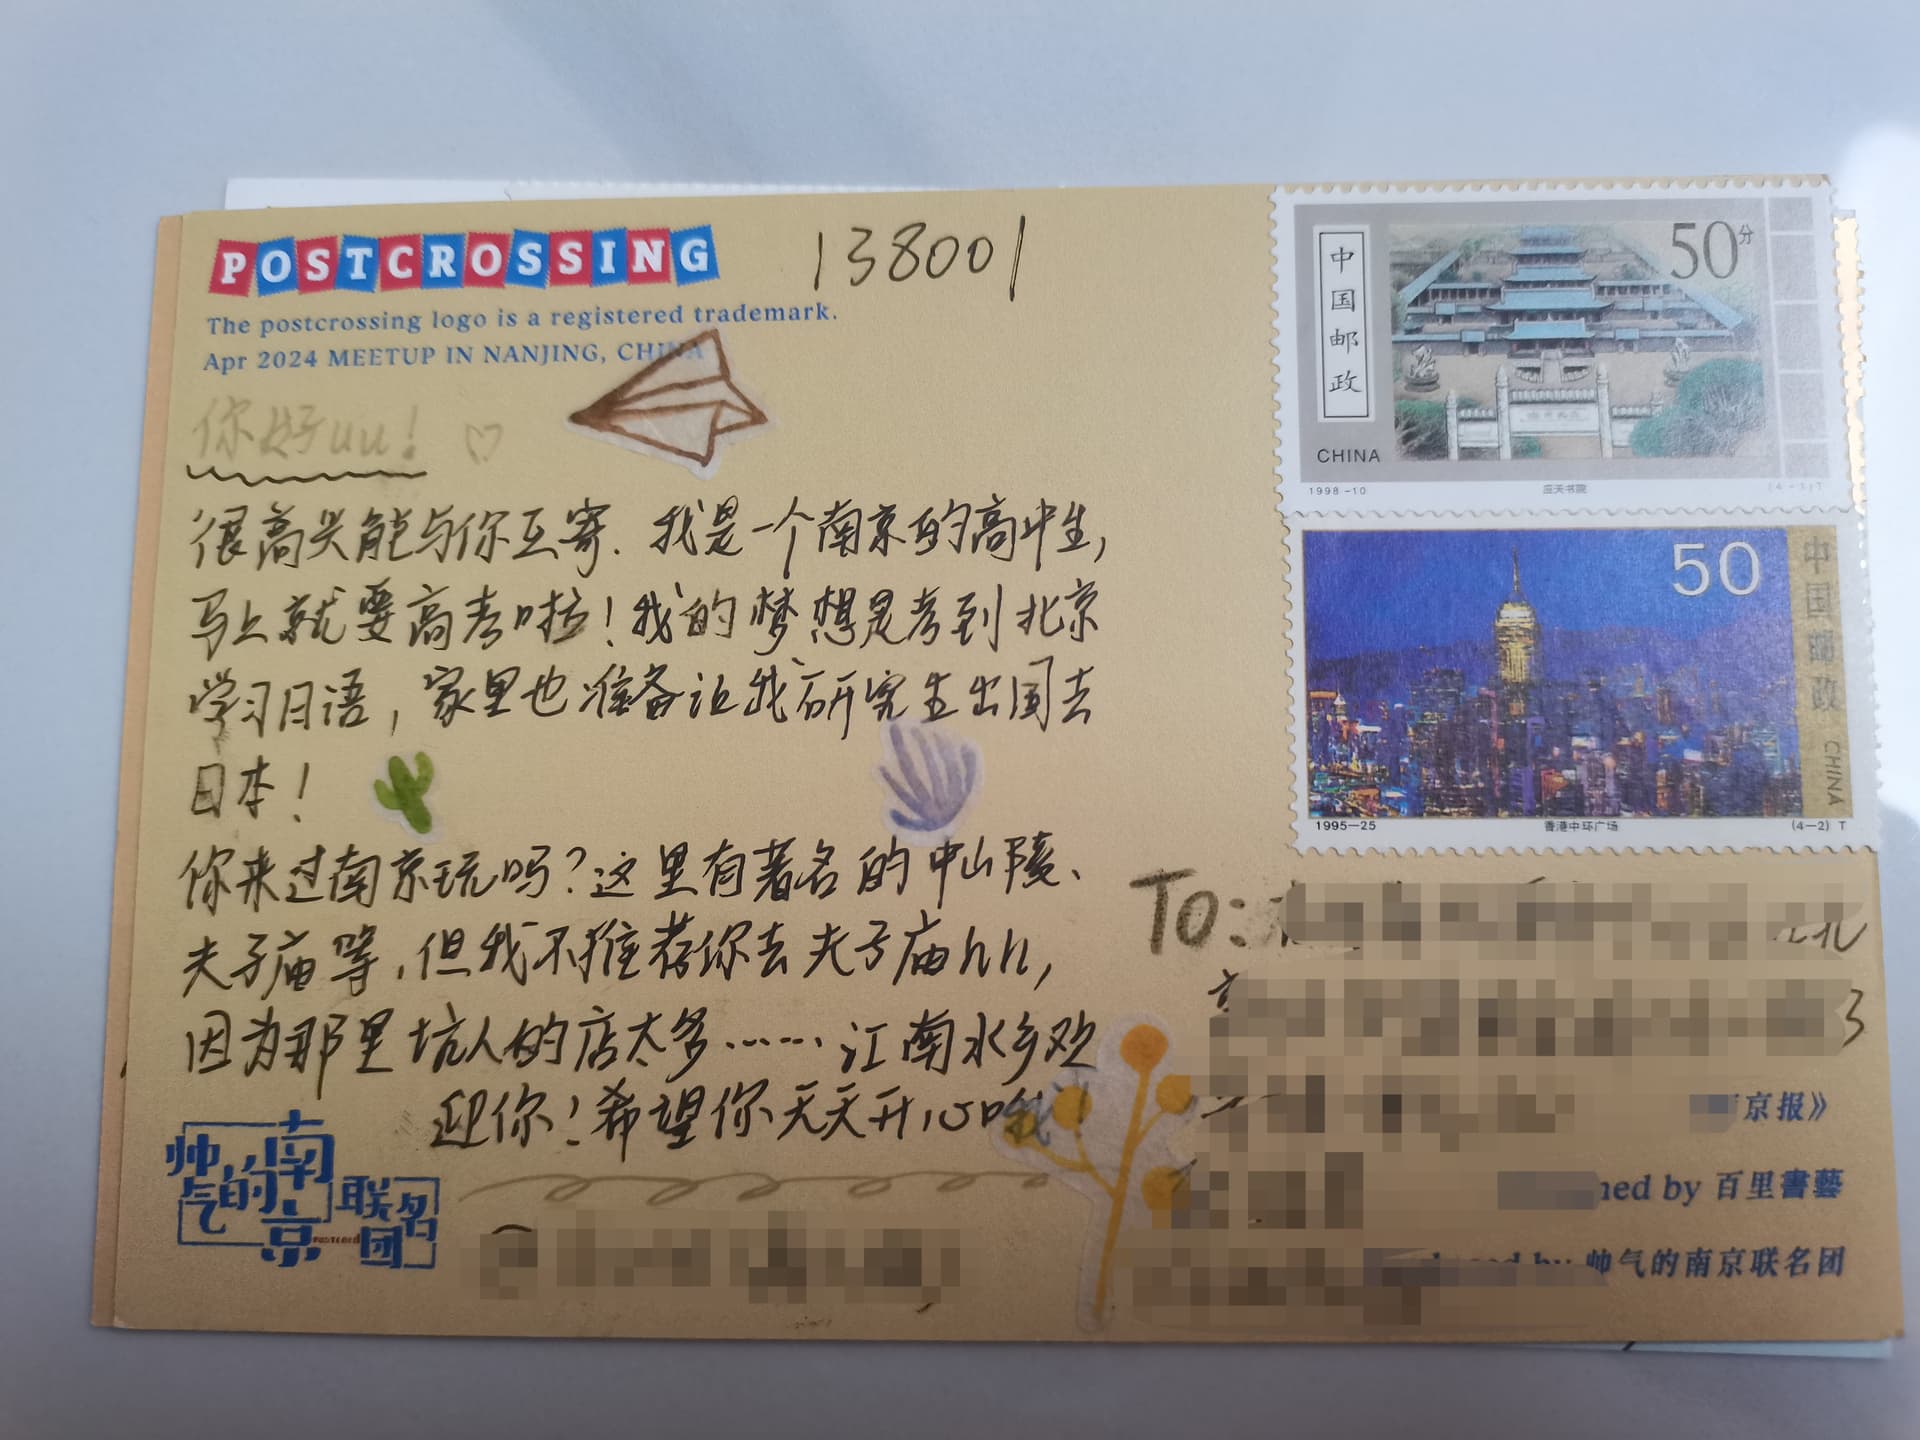 POSTCROSSING
138001
The postcrossing logo is a registered trademark.
Apr 2024 MEETUP IN NANJING, CHINA
你好uu！♡
很高兴能与你互寄.我是一个南京的高中生,
马上就要高考啦！我的梦想是考到北京
学习日语,家里也准备让我研究生出国去
日本！
你来过南京玩吗？这里有著名的中山陵、
夫子庙等,但我不推荐你去夫子庙hh,
因为那里坑人的店太多……江南水乡欢
迎你！希望你天天开心哦！
帅气的南京
联名团
中国邮政
50分
CHINA
1998-10
应天书院
50
中国邮政
CHINA
1995-25
香港中环广场
(4-2) T
To:
京报》
by 百里書藝
by 帅气的南京联名团